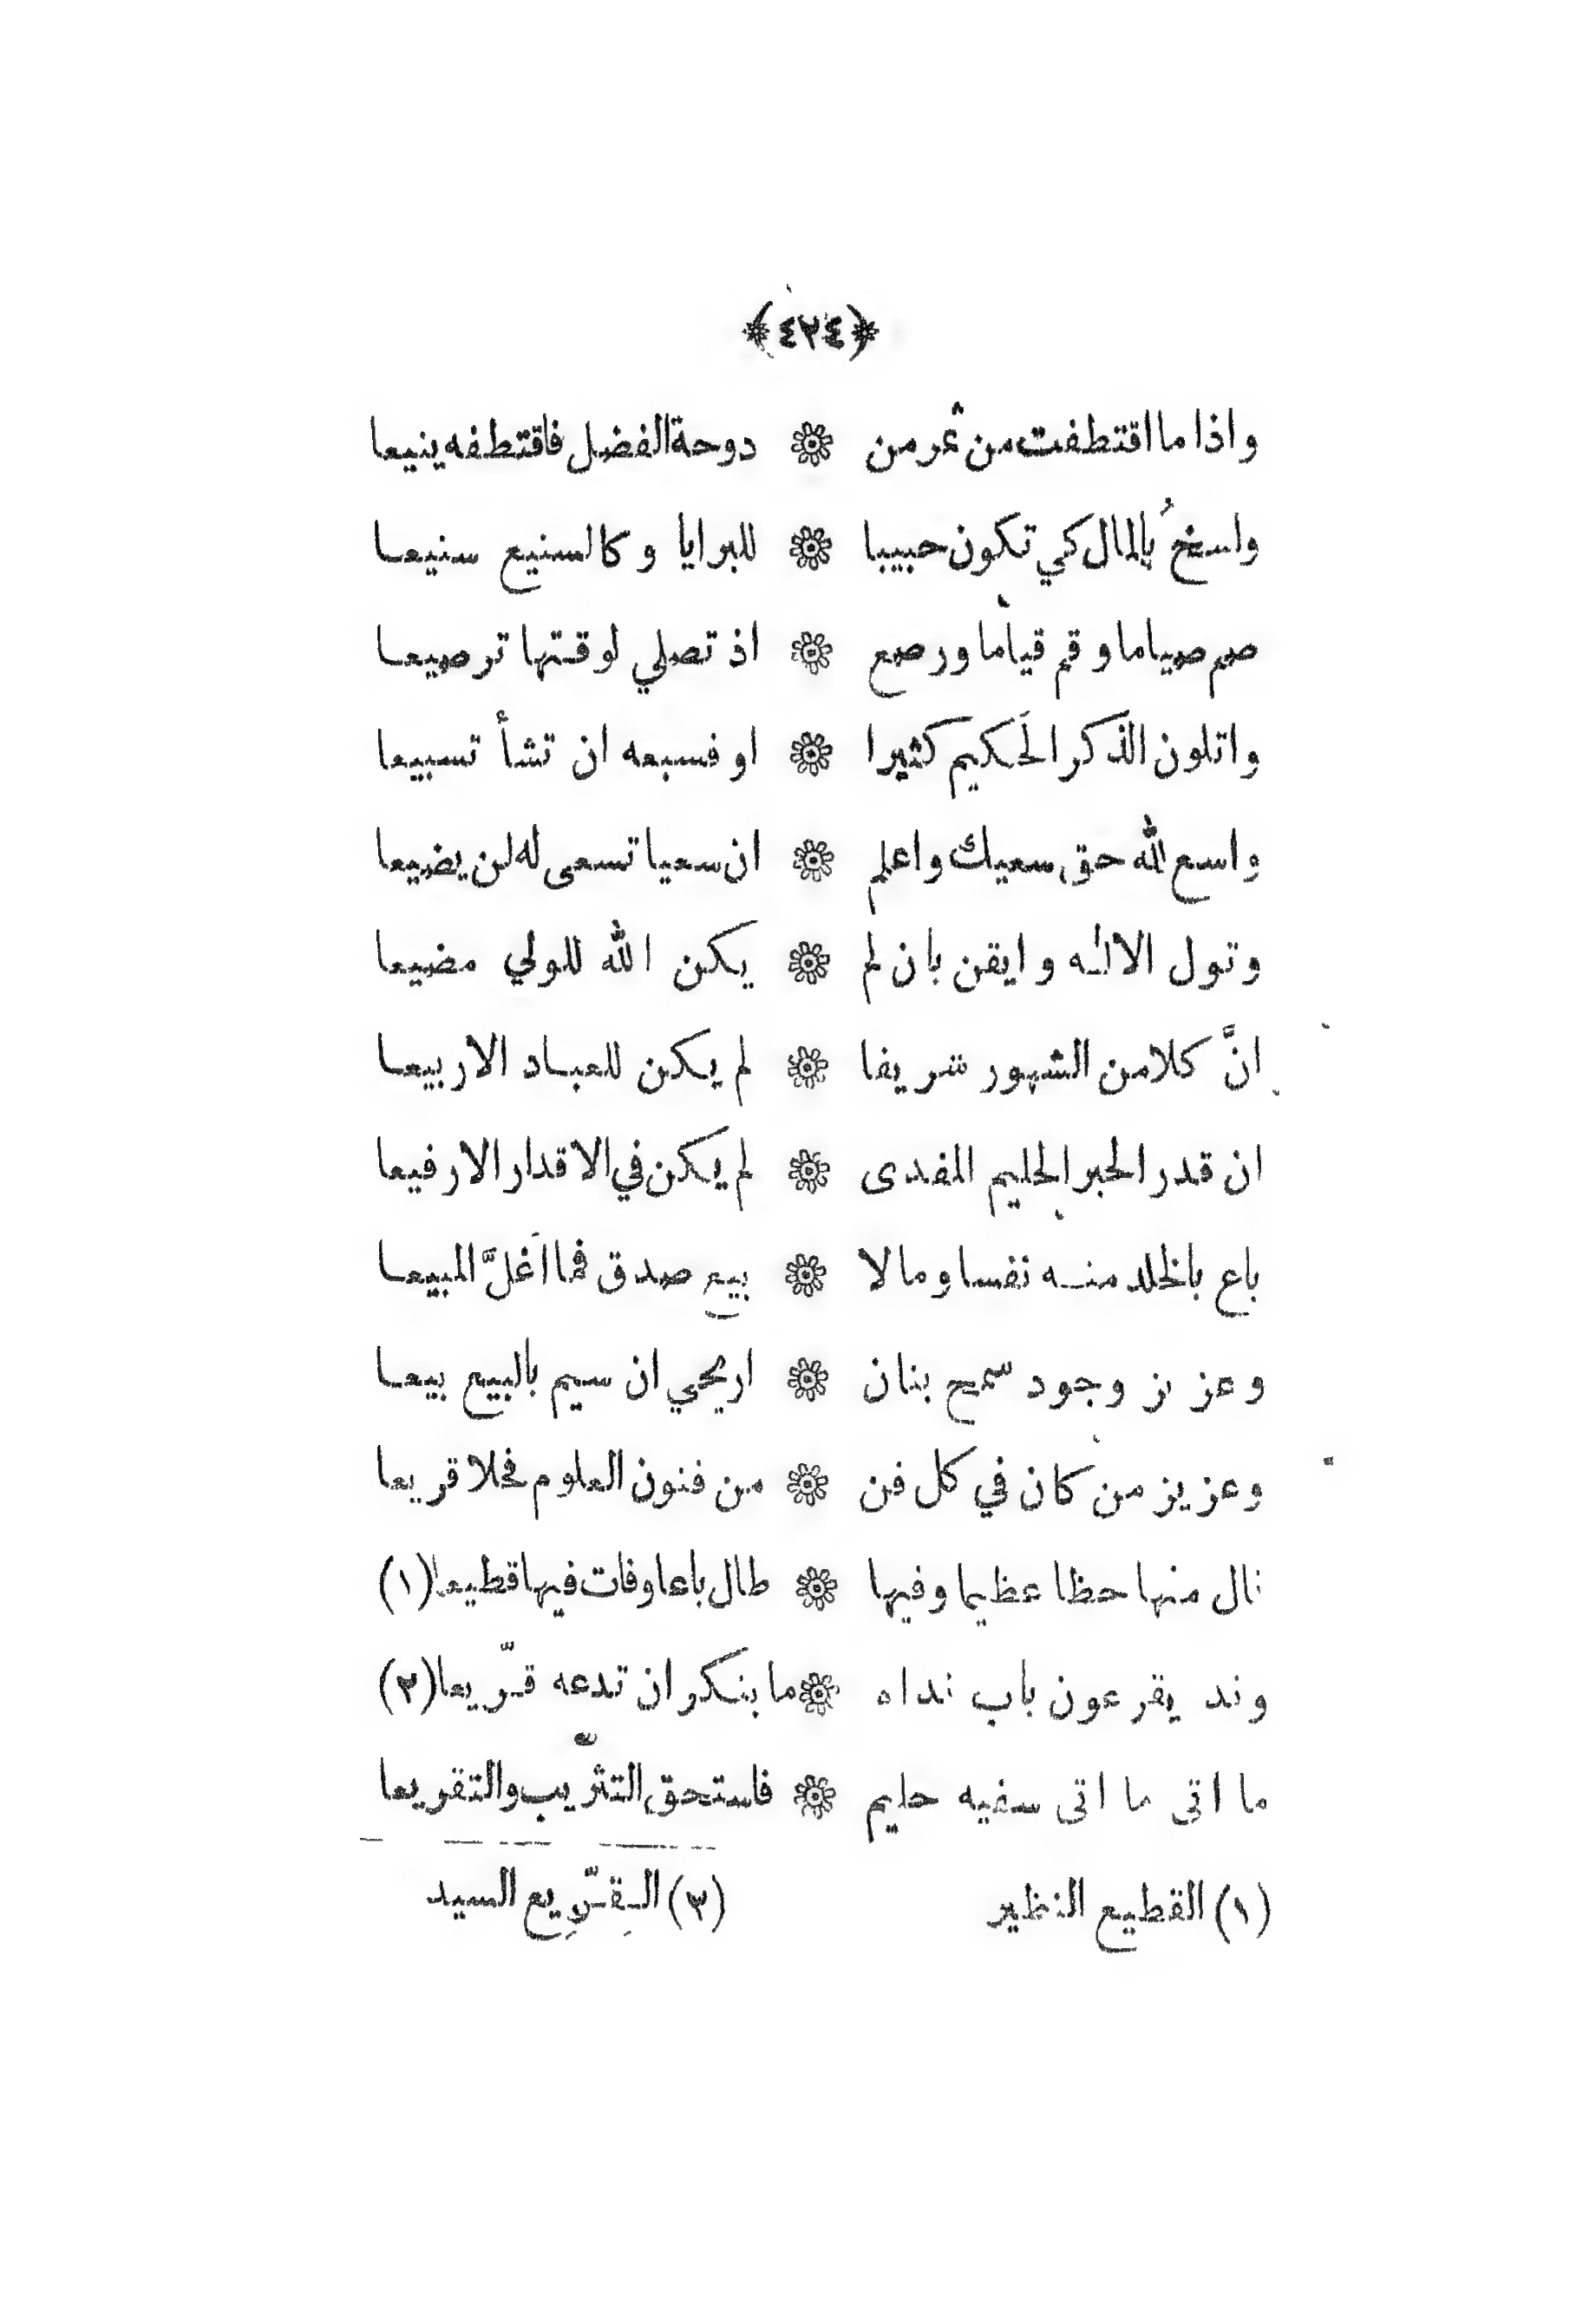 ﴿٤٢٤﴾
واذا ما اقتطفت من ثمر من ۞ دوحة الفضل فاقتطفه ينيعا
واسخُ بالمال كي تكون حبيبا ۞ للبرايا وكالسنيع سنيعا
صم صياما وقم قياما ورصع ۞ اذ تصلي لوقتها ترصيعا
واتلون الذكر الحَكيم كثيرا ۞ او فسبعه ان تشأ تسبيعا
واسع لله حق سعيك واعلم ۞ ان سعيا تسعى له لن يضيعا
وتول الالٰه وايقن بان لم ۞ يكن الله للولي مضيعا
انَّ كلا من الشهور شريفا ۞ لم يكن للعباد الا ربيعا
ان قدر الحبر الحليم المفدى ۞ لم يكن في الاقدار الا رفيعا
باع بالخلد منه نفسا ومالا ۞ بيع صدق فما اَغلَّ المبيعا
وعزيز وجود سمح بنان ۞ اريحي ان سيم بالبيع بيعا
وعزيز من كان في كل فن ۞ من فنون العلوم فحلا قريعا
نال منها حظا عظيما وفيها ۞ طال باعا وفات فيها قطيعا (١)
وند يقرعون باب نداه ۞ ما بنكر ان تدعه قرّيعا (٢)
ما اتى ما اتى سفيه حليم ۞ فاستحق التثريب والتقريعا
(١) القطيع النظير (٢) القِرّيع السيد